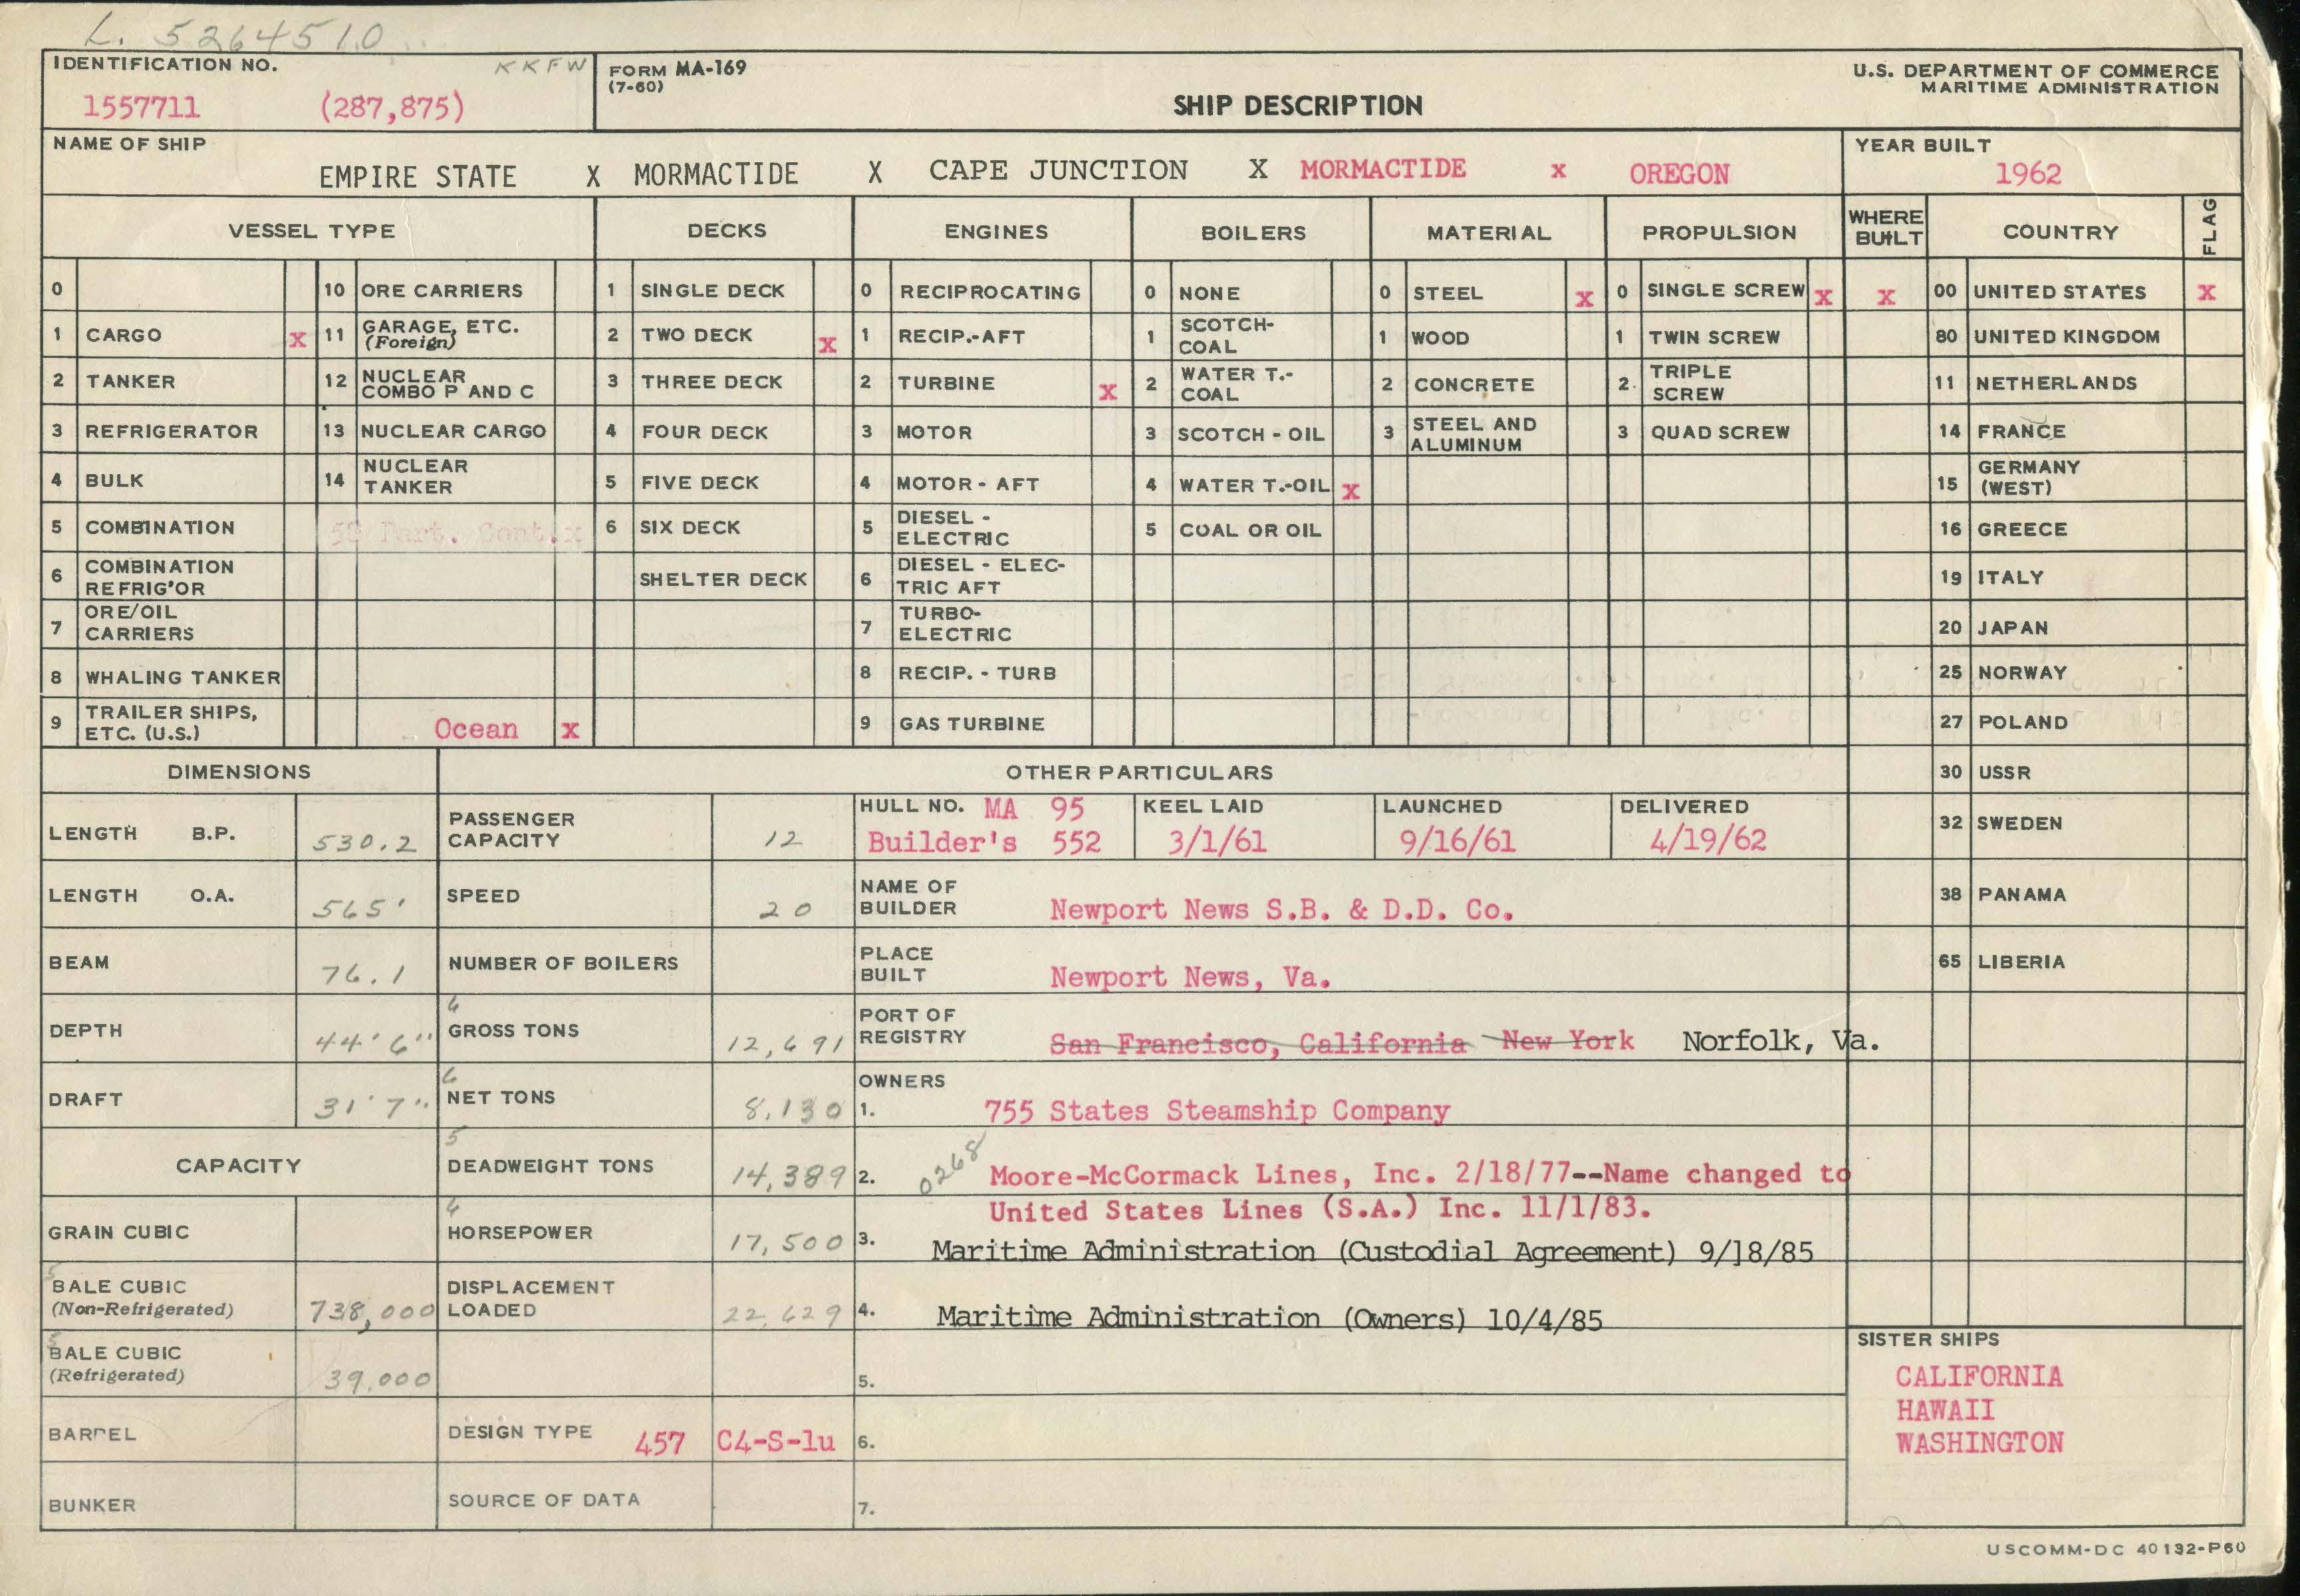 L. 5264510
IDENTIFICATION NO. KKFW
1557711 (287,875)
FORM MA-169
(7-60)
SHIP DESCRIPTION
U.S. DEPARTMENT OF COMMERCE
MARITIME ADMINISTRATION
NAME OF SHIP
EMPIRE STATE X MORMACTIDE X CAPE JUNCTION X MORMACTIDE x OREGON
YEAR BUILT
1962
VESSEL TYPE DECKS ENGINES BOILERS MATERIAL PROPULSION WHERE BUILT COUNTRY FLAG
0 10 ORE CARRIERS 1 SINGLE DECK 0 RECIPROCATING 0 NONE 0 STEEL x 0 SINGLE SCREW x x 00 UNITED STATES x
1 CARGO x 11 GARAGE, ETC. (Foreign) 2 TWO DECK x 1 RECIP.-AFT 1 SCOTCH-COAL 1 WOOD 1 TWIN SCREW 80 UNITED KINGDOM
2 TANKER 12 NUCLEAR COMBO P AND C 3 THREE DECK 2 TURBINE x 2 WATER T.-COAL 2 CONCRETE 2. TRIPLE SCREW 11 NETHERLANDS
3 REFRIGERATOR 13 NUCLEAR CARGO 4 FOUR DECK 3 MOTOR 3 SCOTCH - OIL 3 STEEL AND ALUMINUM 3 QUAD SCREW 14 FRANCE
4 BULK 14 NUCLEAR TANKER 5 FIVE DECK 4 MOTOR - AFT 4 WATER T.-OIL x 15 GERMANY (WEST)
5 COMBINATION 58 Part. Cont. x 6 SIX DECK 5 DIESEL - ELECTRIC 5 COAL OR OIL 16 GREECE
6 COMBINATION REFRIG'OR SHELTER DECK 6 DIESEL - ELECTRIC AFT 19 ITALY
7 ORE/OIL CARRIERS 7 TURBO-ELECTRIC 20 JAPAN
8 WHALING TANKER 8 RECIP. - TURB 25 NORWAY
9 TRAILER SHIPS, ETC. (U.S.) Ocean x 9 GAS TURBINE 27 POLAND
DIMENSIONS OTHER PARTICULARS 30 USSR
LENGTH B.P. 530.2 PASSENGER CAPACITY 12
HULL NO. MA 95 KEEL LAID LAUNCHED DELIVERED
Builder's 552 3/1/61 9/16/61 4/19/62
32 SWEDEN
LENGTH O.A. 565' SPEED 20 NAME OF BUILDER Newport News S.B. & D.D. Co. 38 PANAMA
BEAM 76.1 NUMBER OF BOILERS PLACE BUILT Newport News, Va. 65 LIBERIA
DEPTH 44'6" 6 GROSS TONS 12,691 PORT OF REGISTRY San Francisco, California New York Norfolk, Va.
DRAFT 31'7" 6 NET TONS 8,130 OWNERS
1. 755 States Steamship Company
CAPACITY 5 DEADWEIGHT TONS 14,389 2. 0268 Moore-McCormack Lines, Inc. 2/18/77--Name changed to
United States Lines (S.A.) Inc. 11/1/83.
GRAIN CUBIC 6 HORSEPOWER 17,500 3. Maritime Administration (Custodial Agreement) 9/18/85
5 BALE CUBIC (Non-Refrigerated) 738,000 DISPLACEMENT LOADED 22,629 4. Maritime Administration (Owners) 10/4/85
5 BALE CUBIC (Refrigerated) 39,000 5.
BARREL DESIGN TYPE 457 C4-S-1u 6.
BUNKER SOURCE OF DATA 7.
SISTER SHIPS
CALIFORNIA
HAWAII
WASHINGTON
USCOMM-DC 40132-P60